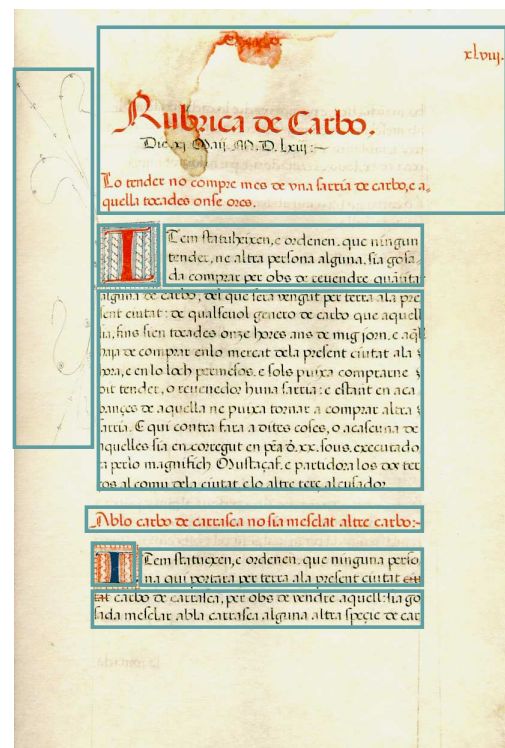 xlviij.
Rubrica de Carbo.
Die xj Maij. M. D. Lxiij:~
Lo tender no compre mes de vna sarria de carbo, e a,
quella tocades onse ores.
ITem statuheixen, e ordenen. que ningun
tender, ne altra persona alguna. sia gosa,
da comprar per obs de reuendre quantita
alguna de carbo, del que sera vengut per terra ala pre
sent ciutat: de qualseuol genero de carbo que aquell
sia, fins sien tocades onze hores ans de mig jorn. e aqll
haja de comprar enlo mercat dela present ciutat ala
hora, e en lo loch permesos. e sols puixa comprarne
dit tender, o reuenedor huna sarria: e estant en aca
bances de aquella ne puixa tornar a comprar altra
sarria. E qui contra fara a dites coses, o acascuna de
aquelles sia en corregut en pēa d. xx. sous. executado
ra perlo magnifich Mustaçaf. e partidora los dos ter
ços al comu dela ciutat elo altre terç al cusador
Ablo carbo de carrasca no sia mesclat altre carbo:~
ITem statuexen, e ordenen. que ninguna perso
na qui portara per terra ala present ciutat ciu
tat carbo de carrasca, per obs de vendre aquell: sia go
sada mesclar abla carrasca alguna altra specie de car